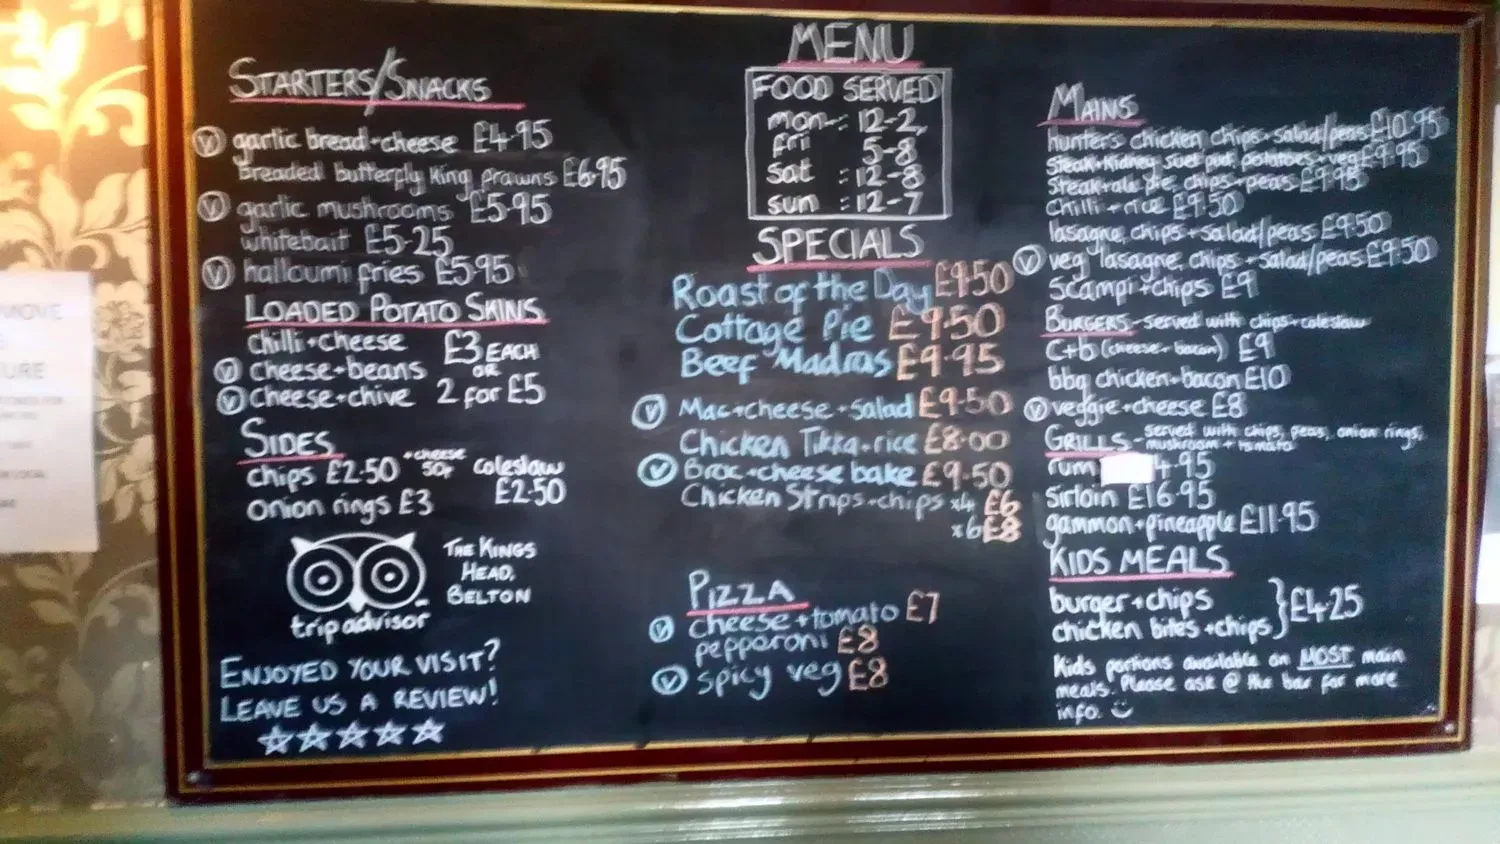 MENU
FOOD SERVED
mon-: 12-2,
fri 5-8
sat : 12-8
sun : 12-7
STARTERS/SNACKS
V garlic bread+cheese £4.95
breaded butterfly king prawns £6.95
V garlic mushrooms £5.95
whitebait £5.25
V halloumi fries £5.95
LOADED POTATO SKINS
chilli+cheese £3 EACH
V cheese+beans OR
V cheese+chive 2 for £5
SIDES
chips £2.50 +cheese 50p coleslaw
onion rings £3 £2.50
tripadvisor
THE KINGS
HEAD,
BELTON
ENJOYED YOUR VISIT?
LEAVE US A REVIEW!
SPECIALS
Roast of the Day £9.50
Cottage Pie £9.50
Beef Madras £9.95
V Mac+cheese+salad £9.50
Chicken Tikka+rice £8.00
V Broc+cheese bake £9.50
Chicken Strips+chips x4 £6
x6 £8
PIZZA
V cheese+tomato £7
pepperoni £8
V spicy veg £8
MAINS
hunters chicken, chips+salad/peas £10.95
Steak+kidney suet pud, potatoes+veg £9.95
Steak+ale pie, chips+peas £9.95
Chilli+rice £9.50
lasagne, chips+salad/peas £9.50
V veg lasagne, chips+salad/peas £9.50
Scampi+chips £9
BURGERS-served with chips+coleslaw
C+b (cheese+bacon) £9
bbq chicken+bacon £10
V veggie+cheese £8
GRILLS-served with chips, peas, onion rings,
mushroom+tomato
rum 4.95
Sirloin £16.95
gammon+pineapple £11.95
KIDS MEALS
burger+chips
chicken bites+chips } £4.25
Kids portions available on MOST main
meals. Please ask @ the bar for more
info.